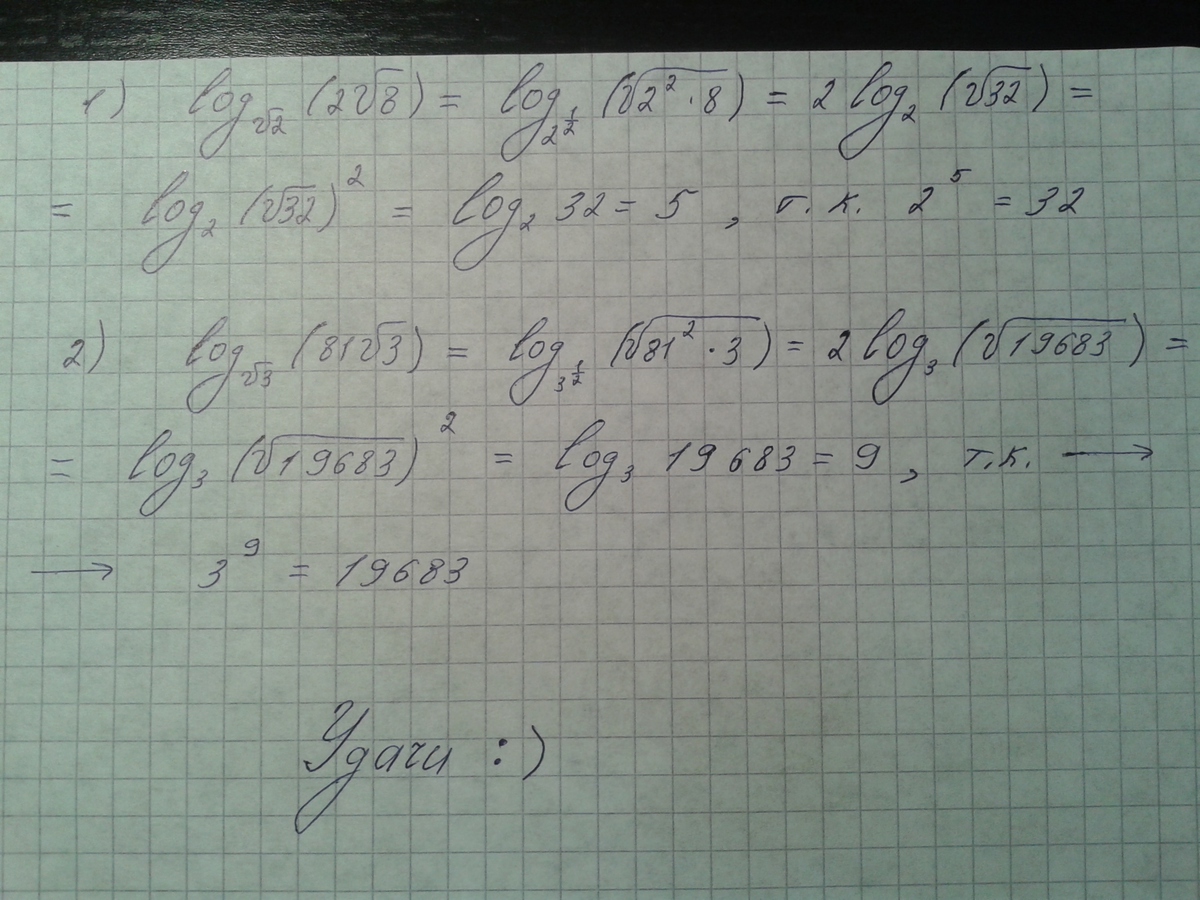 1) log_√2 (2√8) = log_2^½ (√2²·8) = 2 log₂ (√32) =
= log₂ (√32)² = log₂ 32 = 5 , т.к. 2⁵ = 32
2) log_√3 (81√3) = log_3^½ (√81²·3) = 2 log₃ (√19683) =
= log₃ (√19683)² = log₃ 19683 = 9 , т.к. →
→ 3⁹ = 19683
Удачи :)